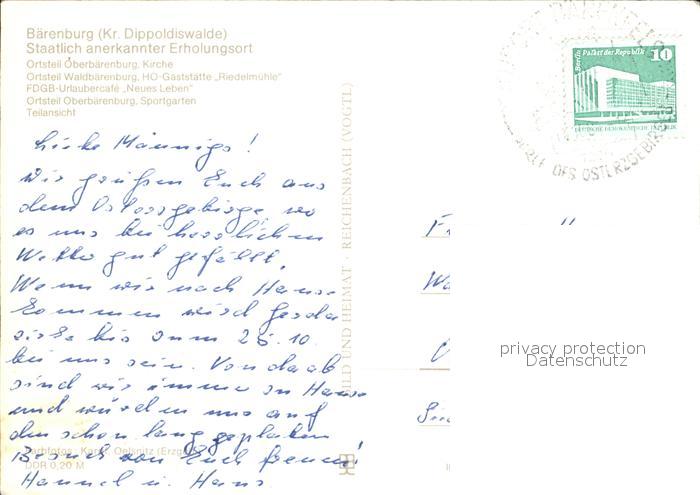 Bärenburg (Kr. Dippoldiswalde)
Staatlich anerkannter Erholungsort
Ortsteil Oberbärenburg, Kirche
Ortsteil Waldbärenburg, HO-Gaststätte „Riedelmühle"
FDGB-Urlaubercafé „Neues Leben"
Ortsteil Oberbärenburg, Sportgarten
Teilansicht
Liebe Männigs!
Wir grüßen Euch aus
dem Osterzgebirge, wo
es uns bei herrlichem
Wetter gut gefällt.
Wenn wir nach Hause
kommen wird Gerda
bis zum 26.10.
bei uns sein. Von da ab
sind wir immer zu Hause
und würden uns auf
den schon lang geplanten
Besuch von Euch freuen!
Hannel u. Hans
Farbfotos: Oelsnitz (Erzg.)
DDR 0,20 M
BILD UND HEIMAT · REICHENBACH (VOGTL)
Berlin Palast der Republik 10
DEUTSCHE DEMOKRATISCHE REPUBLIK
DES OSTERZGEBIRGES
privacy protection
Datenschutz